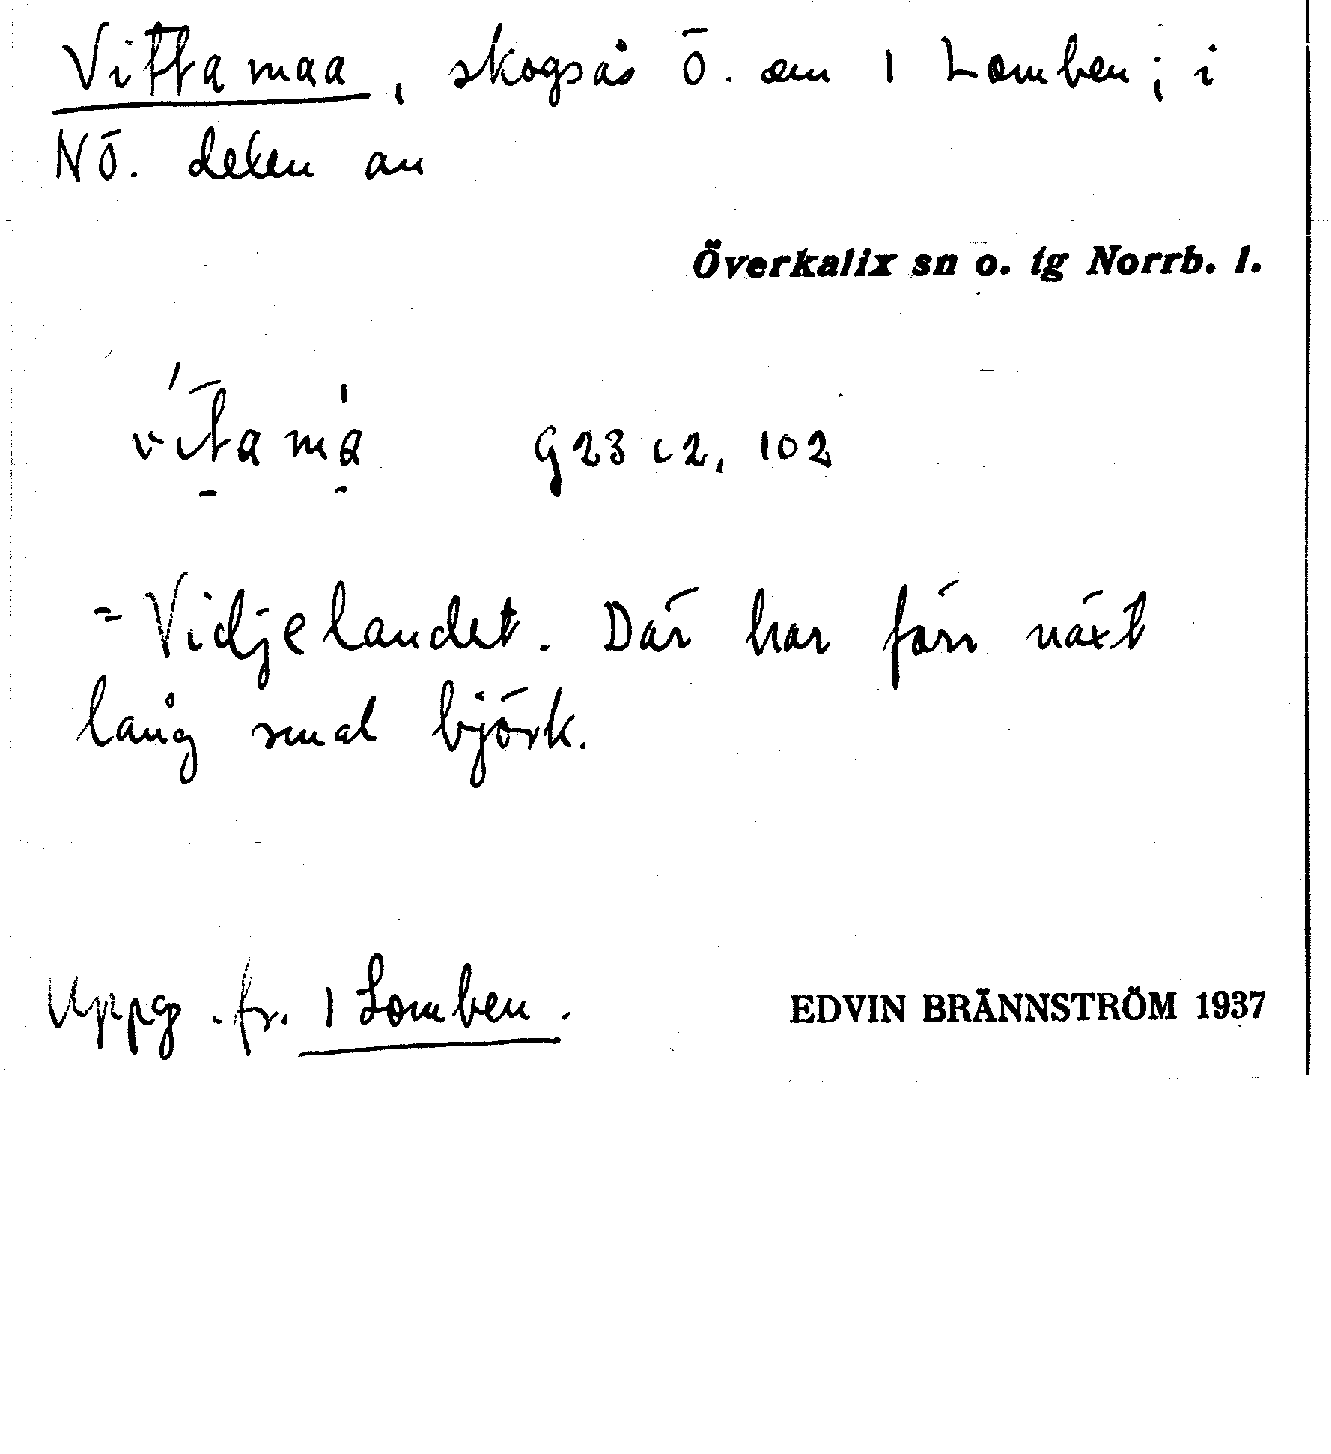 Vittamaa, skogsås Ö. om 1 Lomben; i
NÖ. delen av
Överkalix sn o. tg Norrb. l.
G 23 c 2, 102
= Vidjelandet. Där har förr växt
lång smal björk.
Uppg. fr. 1 Lomben.
EDVIN BRÄNNSTRÖM 1937